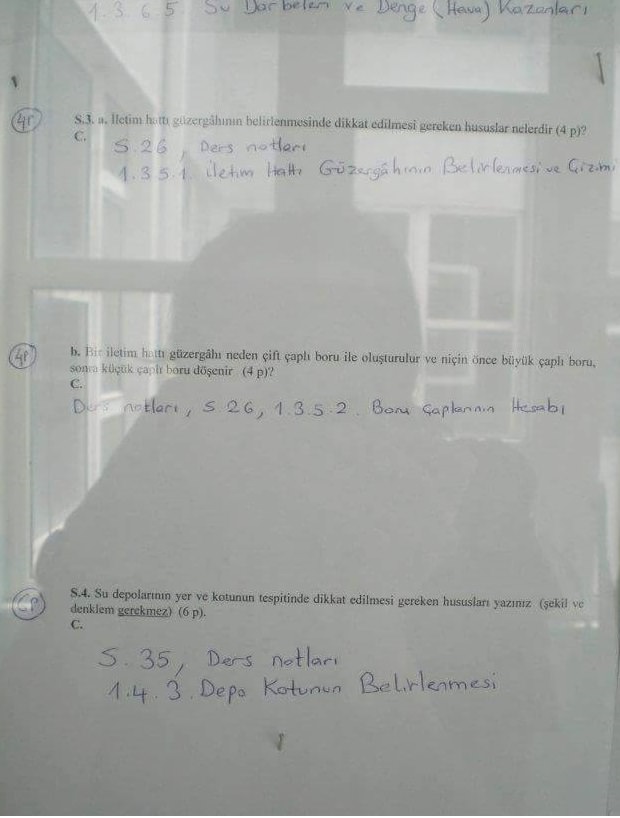 1.3.6.5 Su Darbeleri ve Denge (Hava) Kazanları
4P
S.3. a. İletim hattı güzergâhının belirlenmesinde dikkat edilmesi gereken hususlar nelerdir (4 p)?
C.
S.26, Ders notları
1.3.5.1. İletim Hattı Güzergâhının Belirlenmesi ve Çizimi
4P
b. Bir iletim hattı güzergâhı neden çift çaplı boru ile oluşturulur ve niçin önce büyük çaplı boru,
sonra küçük çaplı boru döşenir (4 p)?
C.
Ders notları, S.26, 1.3.5.2. Boru Çaplarının Hesabı
6P
S.4. Su depolarının yer ve kotunun tespitinde dikkat edilmesi gereken hususları yazınız (şekil ve
denklem gerekmez) (6 p).
C.
S.35, Ders notları
1.4.3. Depo Kotunun Belirlenmesi